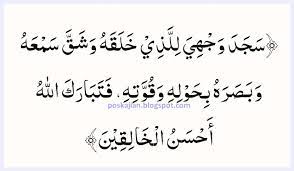 ﴿سَجَدَ وَجْهِيَ لِلَّذِيْ خَلَقَهُ وَشَقَّ سَمْعَهُ
وَبَصَرَهُ بِحَوْلِهِ وَقُوَّتِهِ، فَتَبَارَكَ اللهُ
poskajian.blogspot.com
أَحْسَنُ الْخَالِقِيْنَ﴾